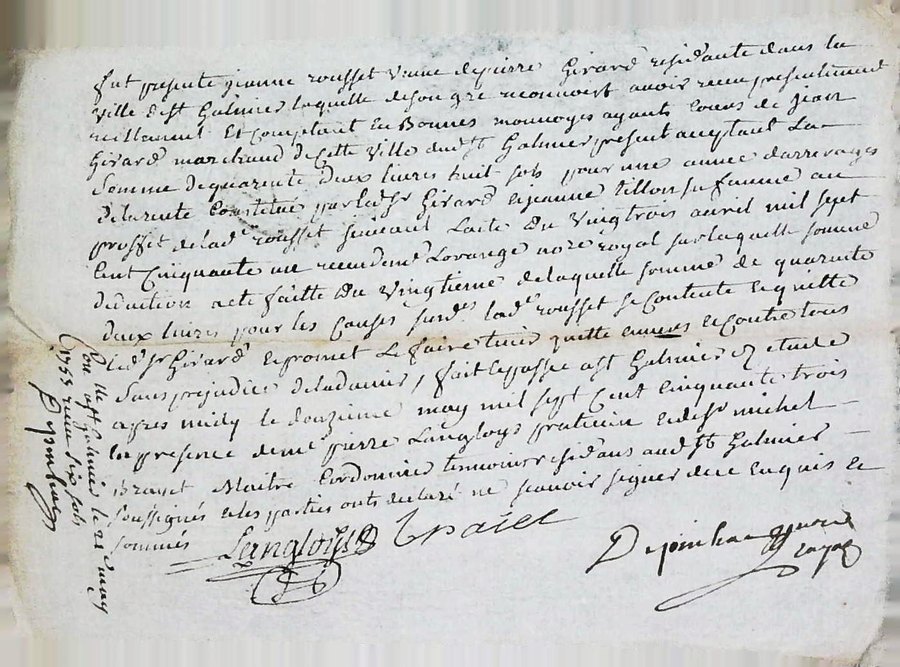 fut presente jeanne rousset veuve depierre Girard residante dans la
ville de st Galmier laquelle deson gre reconnoit avoir receu presentement
reellement Et Comptant En Bonnes monnoyes ayants cours de jean
Girard marchand de Cette ville dud st Galmier present acceptant La
somme de quarente deux livres huit sols pour une année darrerages
de larente Constitué par led sr Girard Et jeanne tillon sa femme au
proffit delad. rousset suivant Lacte Du vingtrois avril mil sept
Cent Cinquante un receu de me Lorange nore royal sur laquelle somme
deduction a ete faitte Du vingtieme de laquelle somme de quarante
deux livres pour les Causes susdes lad. rousset se Contente Et quitte
led. sr Girard Et promet Le faire tenir quitte envers Et Contre tous
sans prejudice deladamis, fait Et passé a st Galmier Etude
apres midy le douzieme may mil sept Cent Cinquante trois
En presence de me pierre Langloys praticien Et de sr michel
Brayet Maitre Cordonnier temoins residans aud st Galmier
soussignés Et les parties onts declaré ne scavoir signer de ce Enquis Et
sommés
Langloys
Brayet
Depinhac
royal
Con. a st Galmier le 21 may
1753 receu six sols
Depinhac